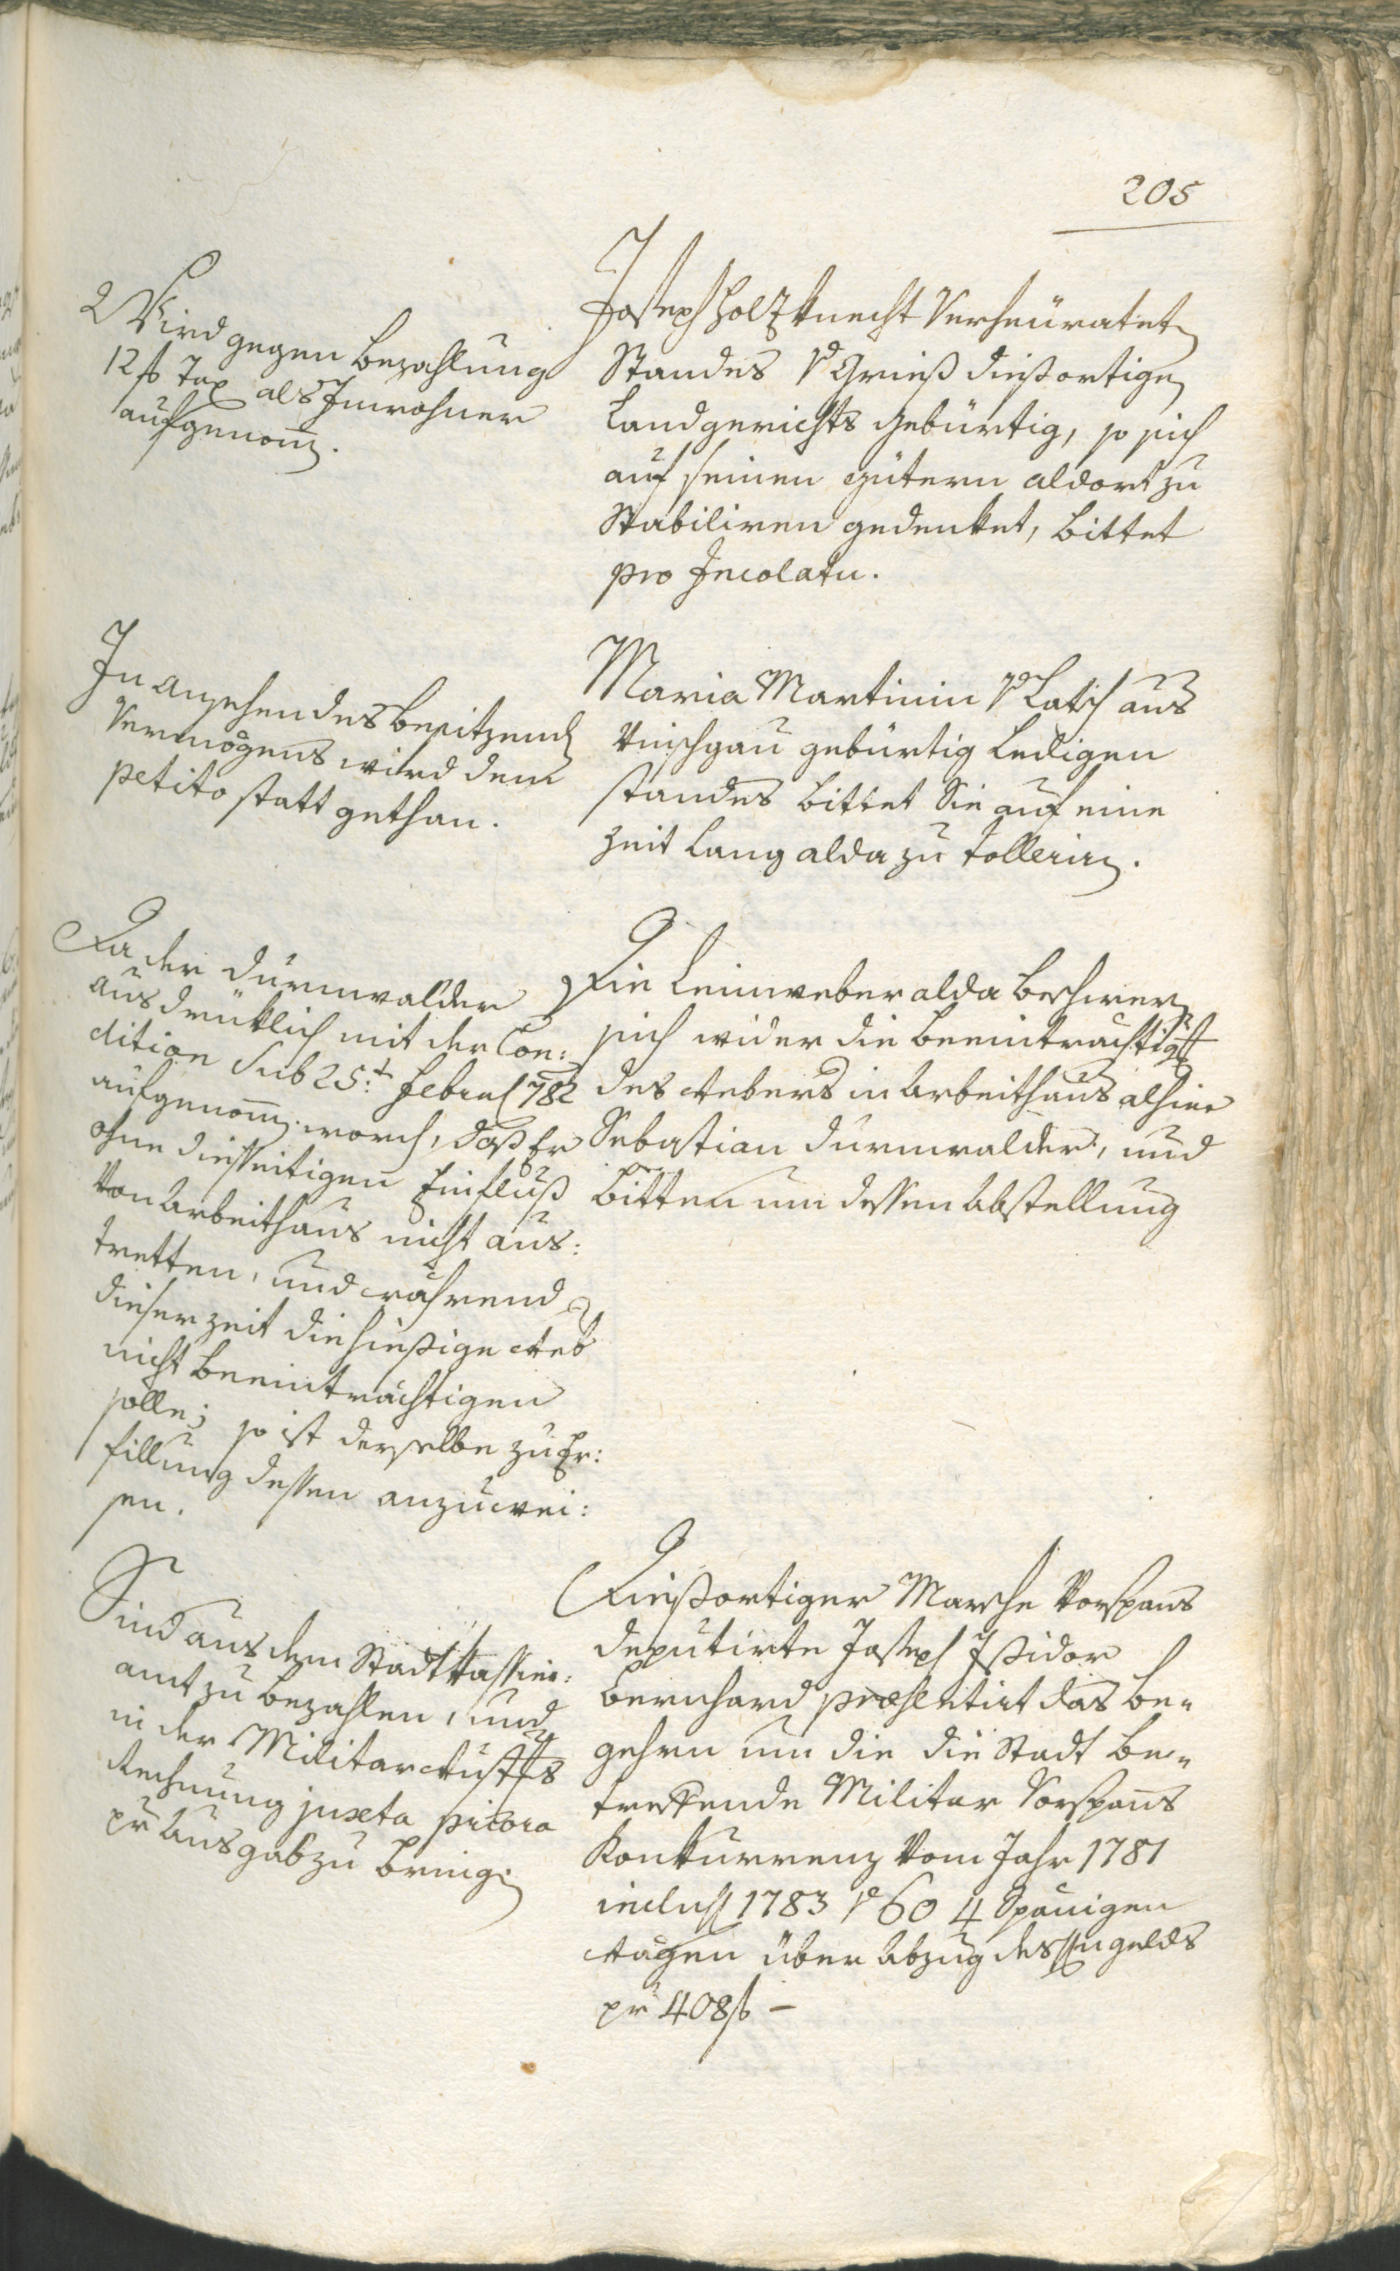 205
Wird gegen Bezahlung
12 f Tax als Inwohner
aufgenom̄en.
Joseph Holzknecht Verheüratet
Standes v. Grieß dießortigen
Landgerichts gebürtig, so sich
auf seinen gütern aldort zu
Stabiliren gedenket, bittet
pro Incolatu.
In ansehen des besitzenden
Vermögens wird dem
petito statt gethan.
Maria Martinin v. Latsch aus
Vinschgau gebürtig Ledigen
standes bittet Sie auf eine
Zeit Lang alda zu tolleriren.
Da der Durnwalder
ausdrüklich mit der Con:
dition sub 25.t Februar 782
aufgenom̄en worden, daß Er
ohne diesseitigen Einfluß
von Arbeithaus nicht aus:
tretten, und während
dieser Zeit die hiesige Web
nicht beeinträchtigen
solle; so ist derselbe zu Er:
füllung dessen anzuwei:
sen.
Die Leinweber alda beschweren
sich wider die beeinträchtigung
des Webers in Arbeithaus alhier
Sebastian Durnwalder, und
bitten um dessen Abstellung
Sind aus dem Stadt Kassier:
amt zu bezahlen, und
in der Militar
Rechnung juxta priora
pr Ausgab zu bringen
Dießortiger Marche Vorspans
deputirte Joseph Issidor
Bernhard præsentirt das be„
gehren um die die Stadt be„
treffende Militar Vorspans
Konkurrenz vom Jahr 1781
inclus 1783 v. 60 4 Spänigen
Wägen über Abzug des
pr 408 f –